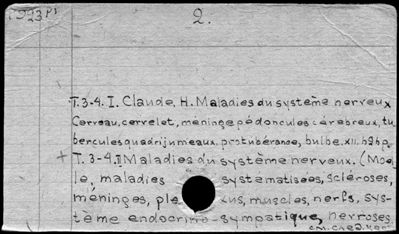 2.
T.3-4. I. Claude, H. Maladies du système nerveux
Cerveau, cervelet, méninges pédoncules cérébreux, tu
bercules quadrijumeaux. protubérance, bulbe. XII. h2bp.
+ T. 3-4. II Maladies du système nerveux. (Moel
le, maladies systématisées, scléroses,
méninges, ple xus, muscles, nerfs, sys-
tème endocrino-sympatique, nevroses